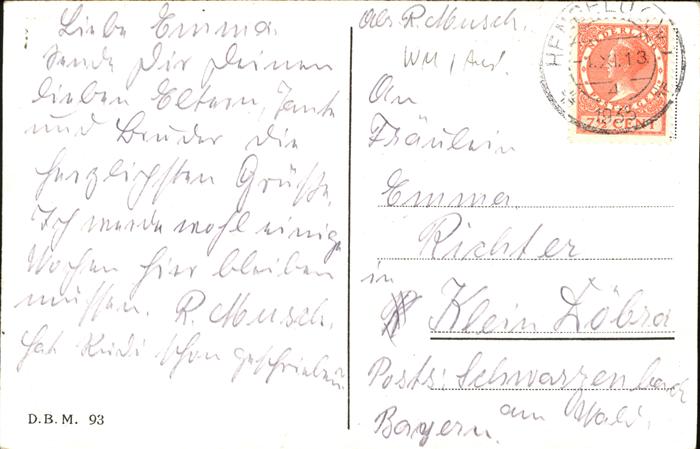 Liebe Emma.
Sende Dir Deinen
lieben Eltern, Tante
und Bruder die
herzlichsten Grüße.
Ich werde wohl einige
Wochen hier bleiben
müssen. R. Musch.
hat Rudi schon geschrieben
D.B.M. 93
Abs R. Musch.
An
Fräulein
Emma
Richter
in
Klein Döbra
Post: Schwarzenbach
am Wald.
Bayern.
HENGELO
NEDERLAND
1933
7½ CENT